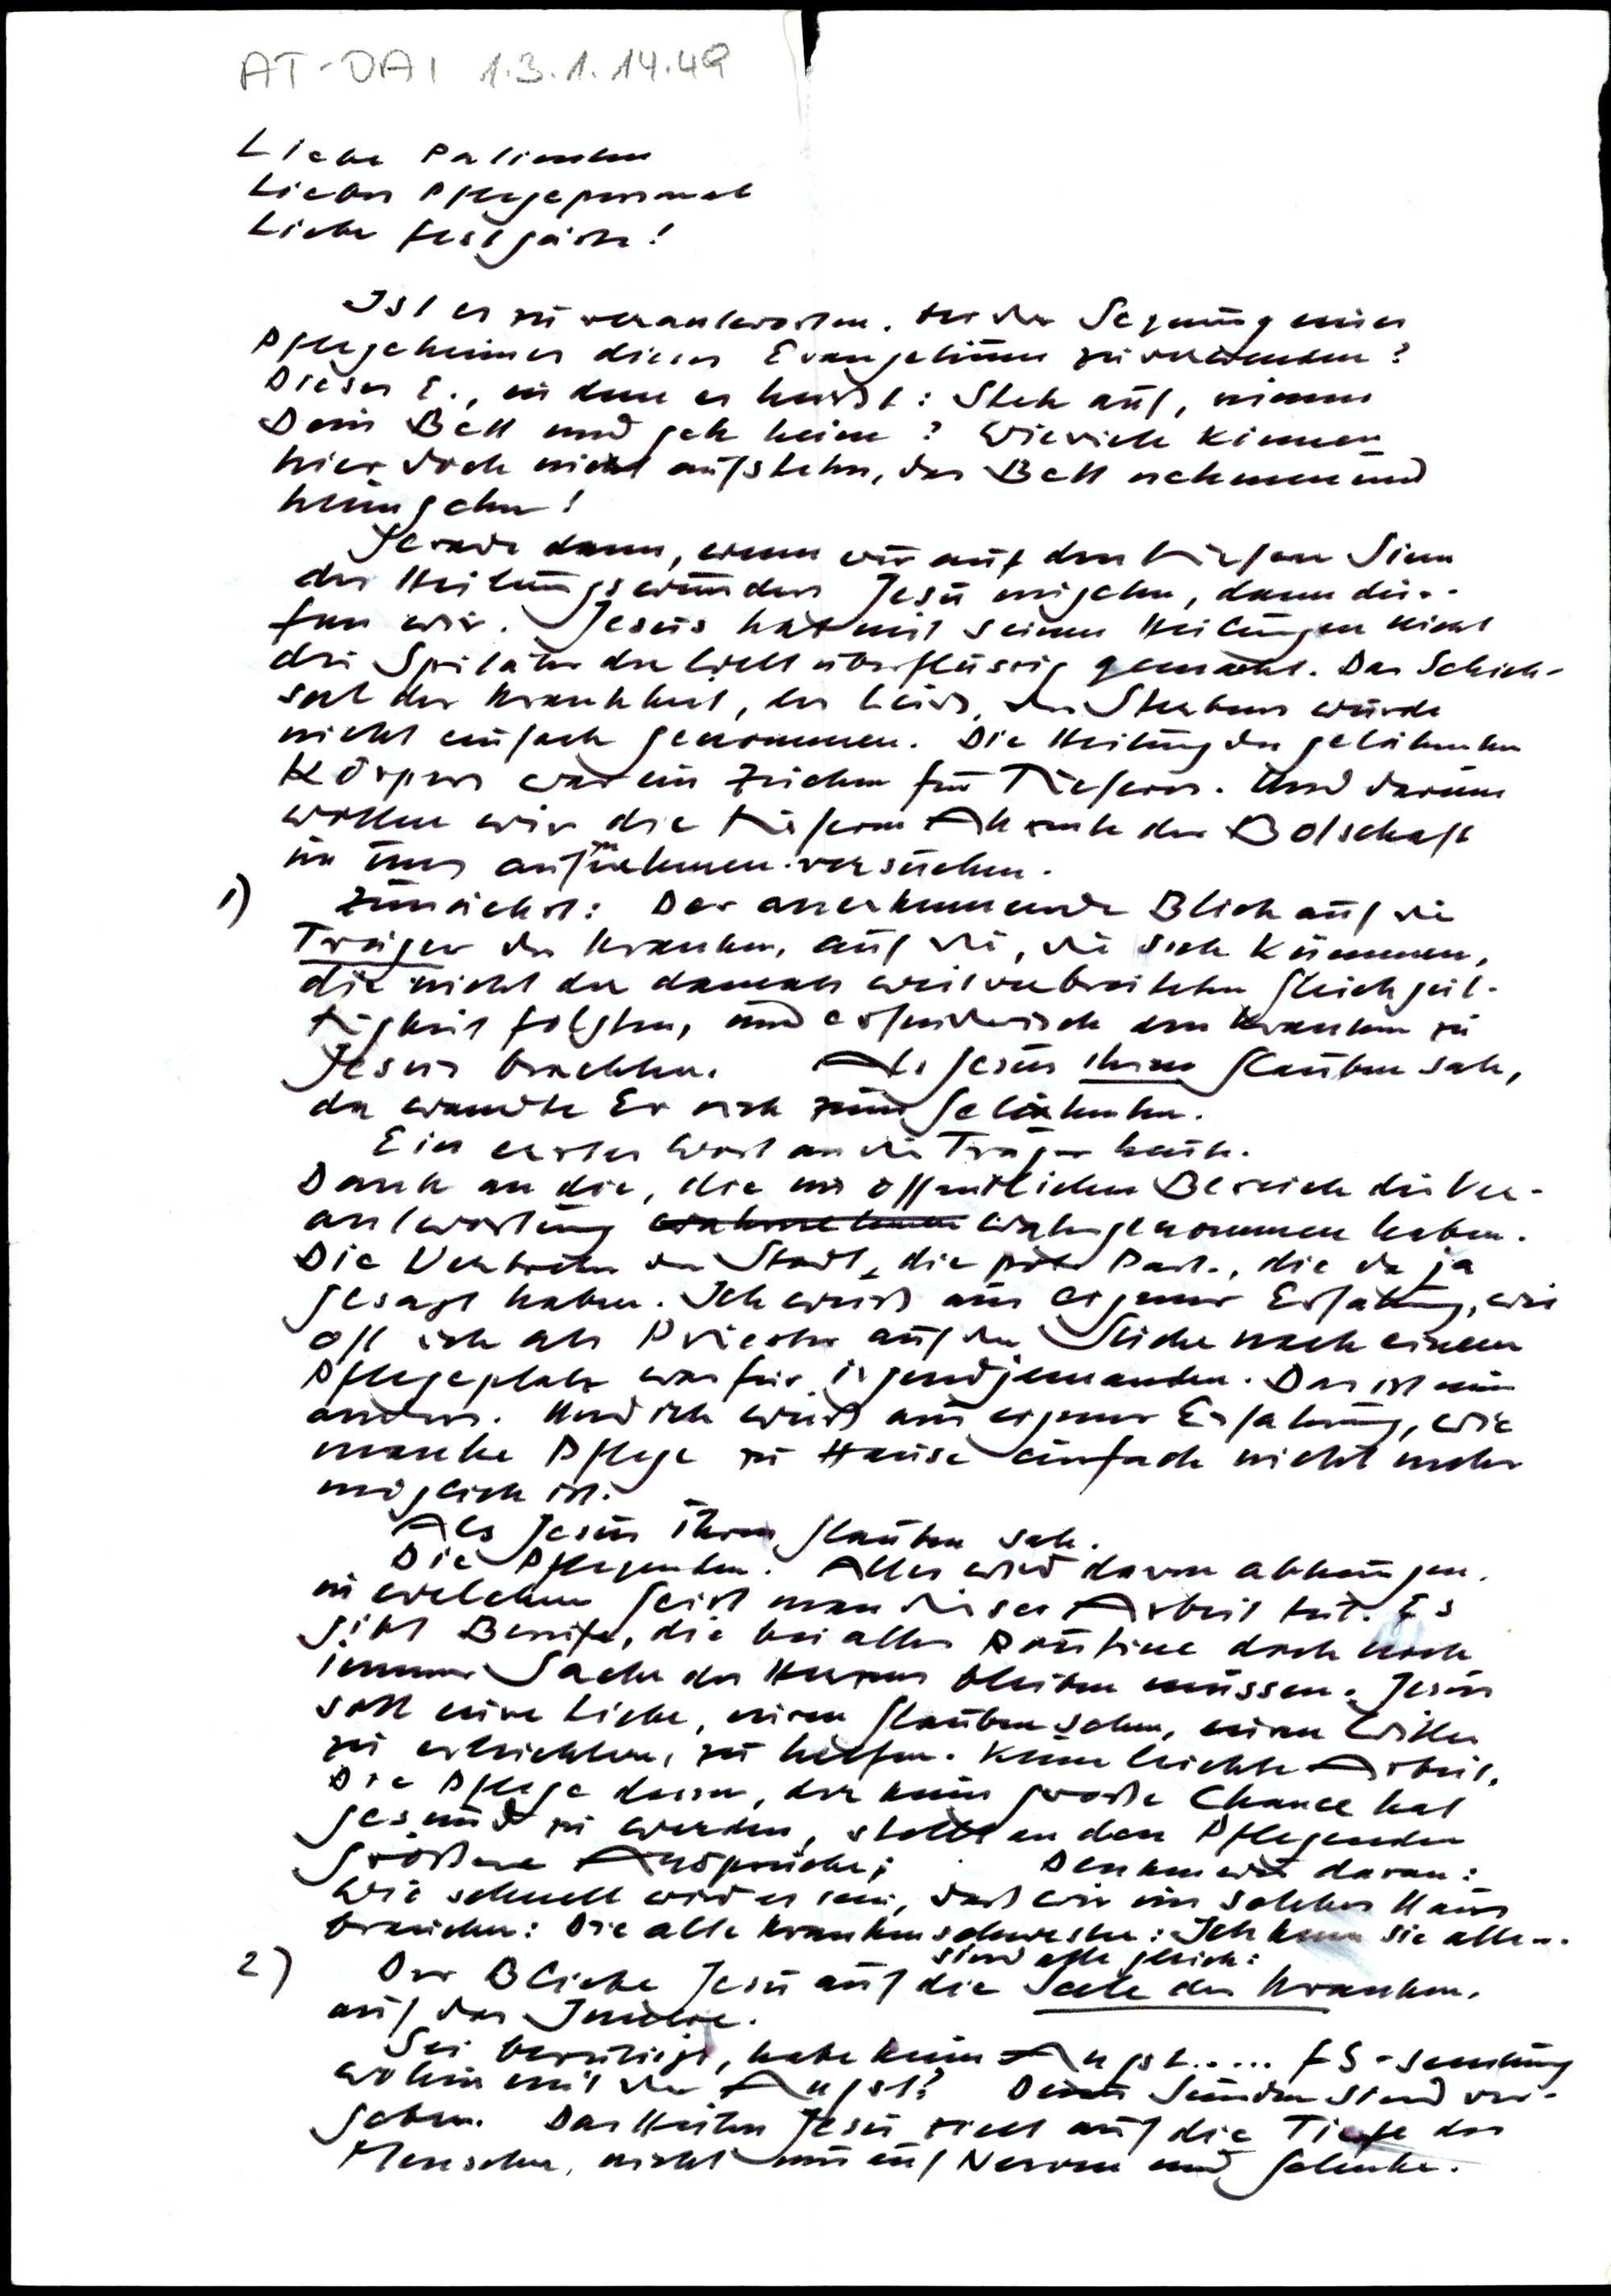 AT-DAI 1.3.1.14.49
Liebe Patienten
Liebes Pflegepersonal
Liebe Festgäste!
Ist es zu verantworten, bei der Segnung eines
Pflegeheimes dieses Evangelium zu verwenden?
Dieses E., in dem es heißt: Steh auf, nimm
Dein Bett und geh heim? Wieviele können
hier doch nicht aufstehn, das Bett nehmen und
heimgehn!
Gerade dann, wenn wir auf den tiefen Sinn
des Heilungswunders Jesu eingehn, dann dür-
fen wir. Jesus hat mit seinen Heilungen nicht
die Spitäler der Welt überflüssig gemacht. Das Schick-
sal der Krankheit, des Leids, des Sterbens wurde
nicht einfach genommen. Die Heilung des gelähmten
Körpers war ein Zeichen für Tieferes. Und darum
wollen wir die tieferen Akzente der Botschaft
in uns aufzunehmen versuchen.
1) Zunächst: Der anerkennende Blick auf die
Träger des Kranken, auf die, die sich kümmern,
die nicht der damals weitverbreiteten Gleichgül-
tigkeit folgten, und erfinderisch den Kranken zu
Jesus brachten. Als Jesus ihren Glauben sah,
da wandte Er sich zum Gelähmten.
Ein erstes Wort an die Träger heute.
Dank an die, die im öffentlichen Bereich die Ver-
antwortung wahrnehmen wahrgenommen haben.
Die Vertreter der Stadt, die pol. Part., die da ja
gesagt haben. Ich weiß aus eigener Erfahrung, wie
oft ich als Priester auf der Suche nach einem
Pflegeplatz war für irgendjemanden. Das ist nun
anders. Und ich weiß aus eigener Erfahrung, wie
manche Pflege zu Hause einfach nicht mehr
möglich ist.
Als Jesus ihren Glauben sah.
Die Pflegenden. Alles wird davon abhängen,
in welchem Geist man dieser Arbeit tut. Es
gibt Berufe, die bei aller Routine doch noch
immer Sache des Herzens bleiben müssen. Jesus
soll eure Liebe, euren Glauben sehen, euren Willen
zu erleichtern, zu helfen. Keine leichte Arbeit.
Die Pflege dessen, der keine große Chance hat
gesund zu werden, stellt an den Pflegenden
größere Ansprüche; Denken wir daran:
Wie schnell wird es sein, daß wir ein solches Haus
brauchen: Die alte Krankenschwester: Ich kenn sie alle...
sind alle gleich:
2) Der Blicke Jesu auf die Seele des Kranken,
auf das Innere.
Sei beruhigt, habe keine Angst..... FS-Sendung
wohin mit der Angst? Deine Sünden sind ver-
geben. Das Heilen Jesu zielt auf die Tiefe des
Menschen, nicht nur auf Nerven und Gelenke.